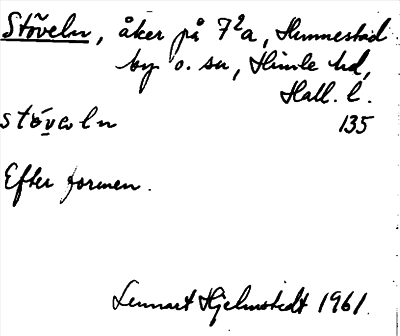 Stöveln, åker på 7²a, Himmestad
by o. sn, Himle hd,
Hall. l.
stövəln 135
Efter formen.
Lennart Hjelmstedt 1961.